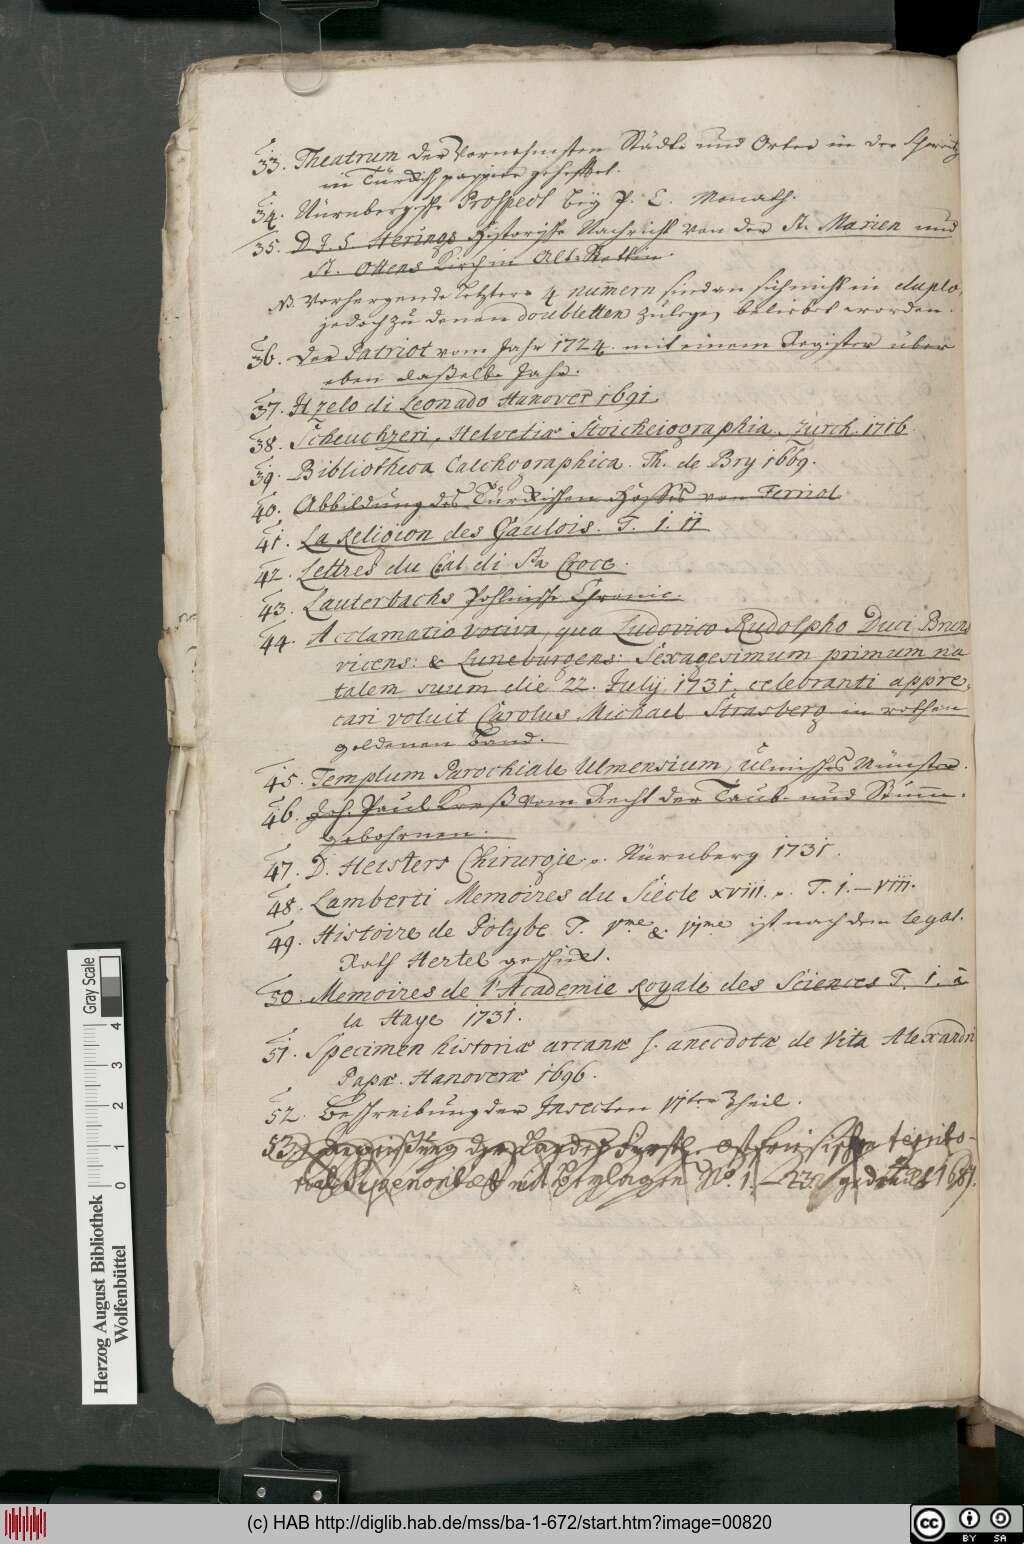 33. Theatrum der Vornehmsten Städte und Orter in der Schweitz
in Türckisch pappier gehefftet.
34. Nürnbergische Prospect beÿ P. C. Monath.
35. D. J. S. Herings Historische Nachricht von der St. Marien und
St. Ottens Kirch in Alt-Stettin.
NB. Vorhergende letztere 4 num̄ern sind an sich nicht in duplo,
jedoch zu denen doubletten zu legen beliebet worden.
36. Der Patriot vom Jahr 1724. mit einem Register über
eben daßelbe Jahr.
37. Il zelo di Leonado Hanover 1691
38. Scheuchzeri, Helvetiæ Stoicheiographia. Zürch. 1716
39. Bibliotheca Calchographica. Th. de Bry 1669.
40. Abbildung des Türckischen Hoffes von Ferriol
41. La Religion des Gaulois. T. I. II
42. Lettres du Cat. di Sta Croce.
43. Lauterbachs Pohlnische Chronic.
44. Acclamatio votiva, qua Ludovico Rudolpho Duci Bruns
vicens: & Luneburgens: Sexagesimum primum na
talem suum die 22. Julij 1731. celebranti appre,
cari voluit Carolus Michael Strasberg in rothen
goldenen Band.
45. Templum Parochiale Ulmensium, Ulmisches Münster.
46. Joh. Paul Kreß vom Recht der Taub- und Stum̄-
gebohrnen.
47. D. Heisters Chirurgie, Nürnberg 1731.
48. Lamberti Memoires du Siècle XVIII. T. I.–VIII.
49. Histoire de Polybe T. Vme & VIme ist nach dem legat.
Rath Hertel geschickt.
50. Memoires de l'Academie Royale des Sciences T. I. à
la Haye 1731.
51. Specimen historiæ arcanæ s. anecdotæ de Vita Alexandri
Papæ. Hanoveræ 1696.
52. Beschreibung der Insecten VIter Theil.
53. der Fürstl. Ost Friesischen territo-
mit Beylagen No. 1. 1687.
0 1 2 3 4
Gray Scale
Herzog August Bibliothek
Wolfenbüttel
(c) HAB http://diglib.hab.de/mss/ba-1-672/start.htm?image=00820
cc BY SA